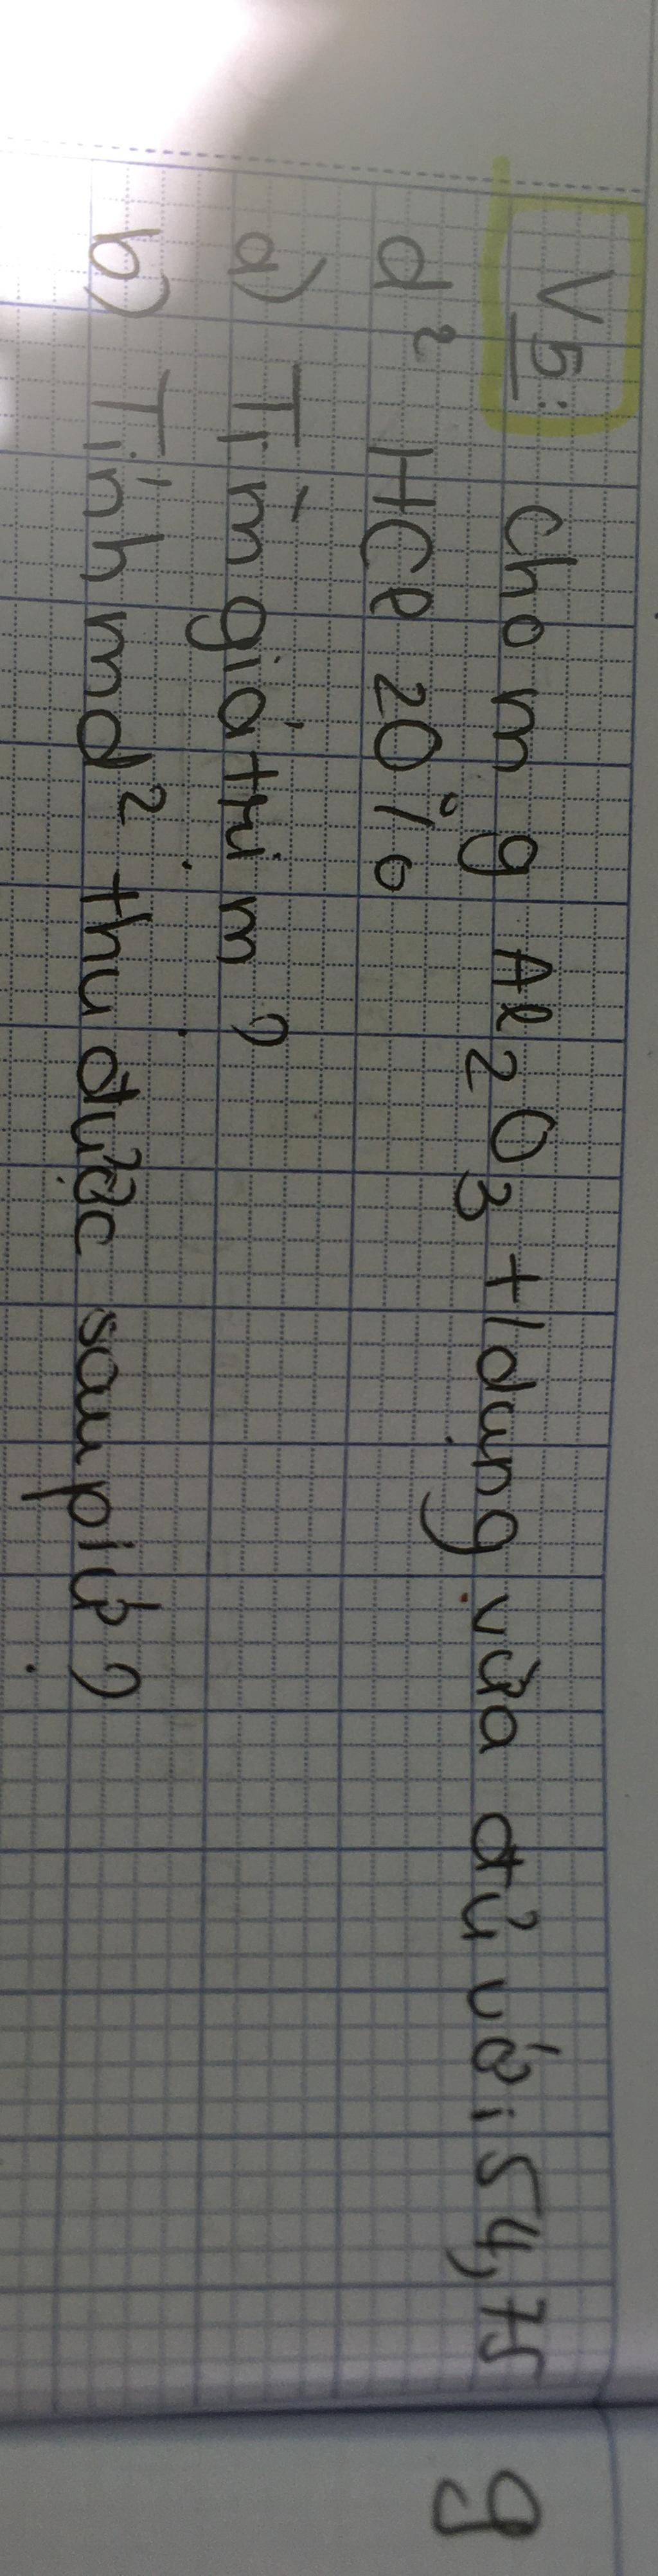 V5: cho m g Al2O3 +/dụng vừa đủ với 54,75 g
d² HCl 20%
a) Tìm giá trị m?
b) Tính md² thu được sau pứ?